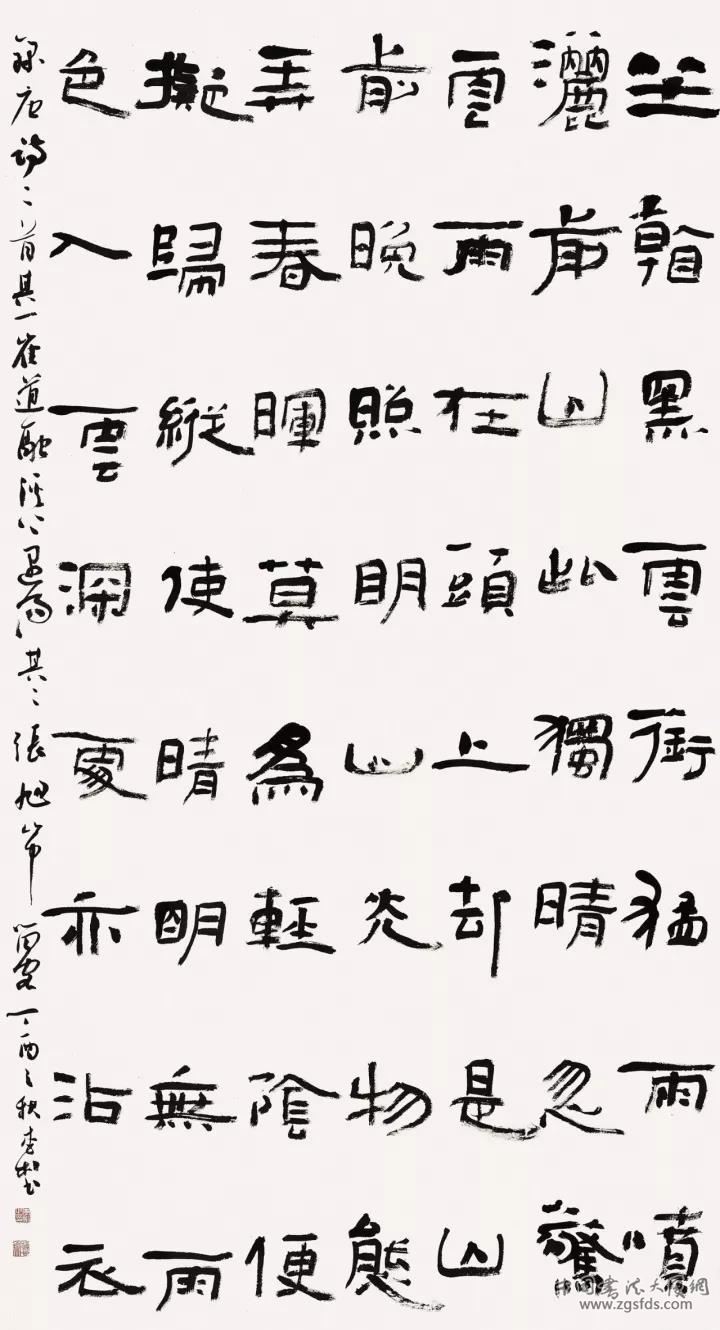 坐看黑雲銜猛雨噴
灑前山此獨晴忽驚
雲雨在頭上却是山
前晚照明山光物態
弄春暉莫為輕陰便
擬歸縱使晴明無雨
色入雲深處亦沾衣
錄唐詩二首其一崔道融溪上遇雨其二張旭山中留客丁酉之秋李
中国書法大賽網
www.zgsfds.com